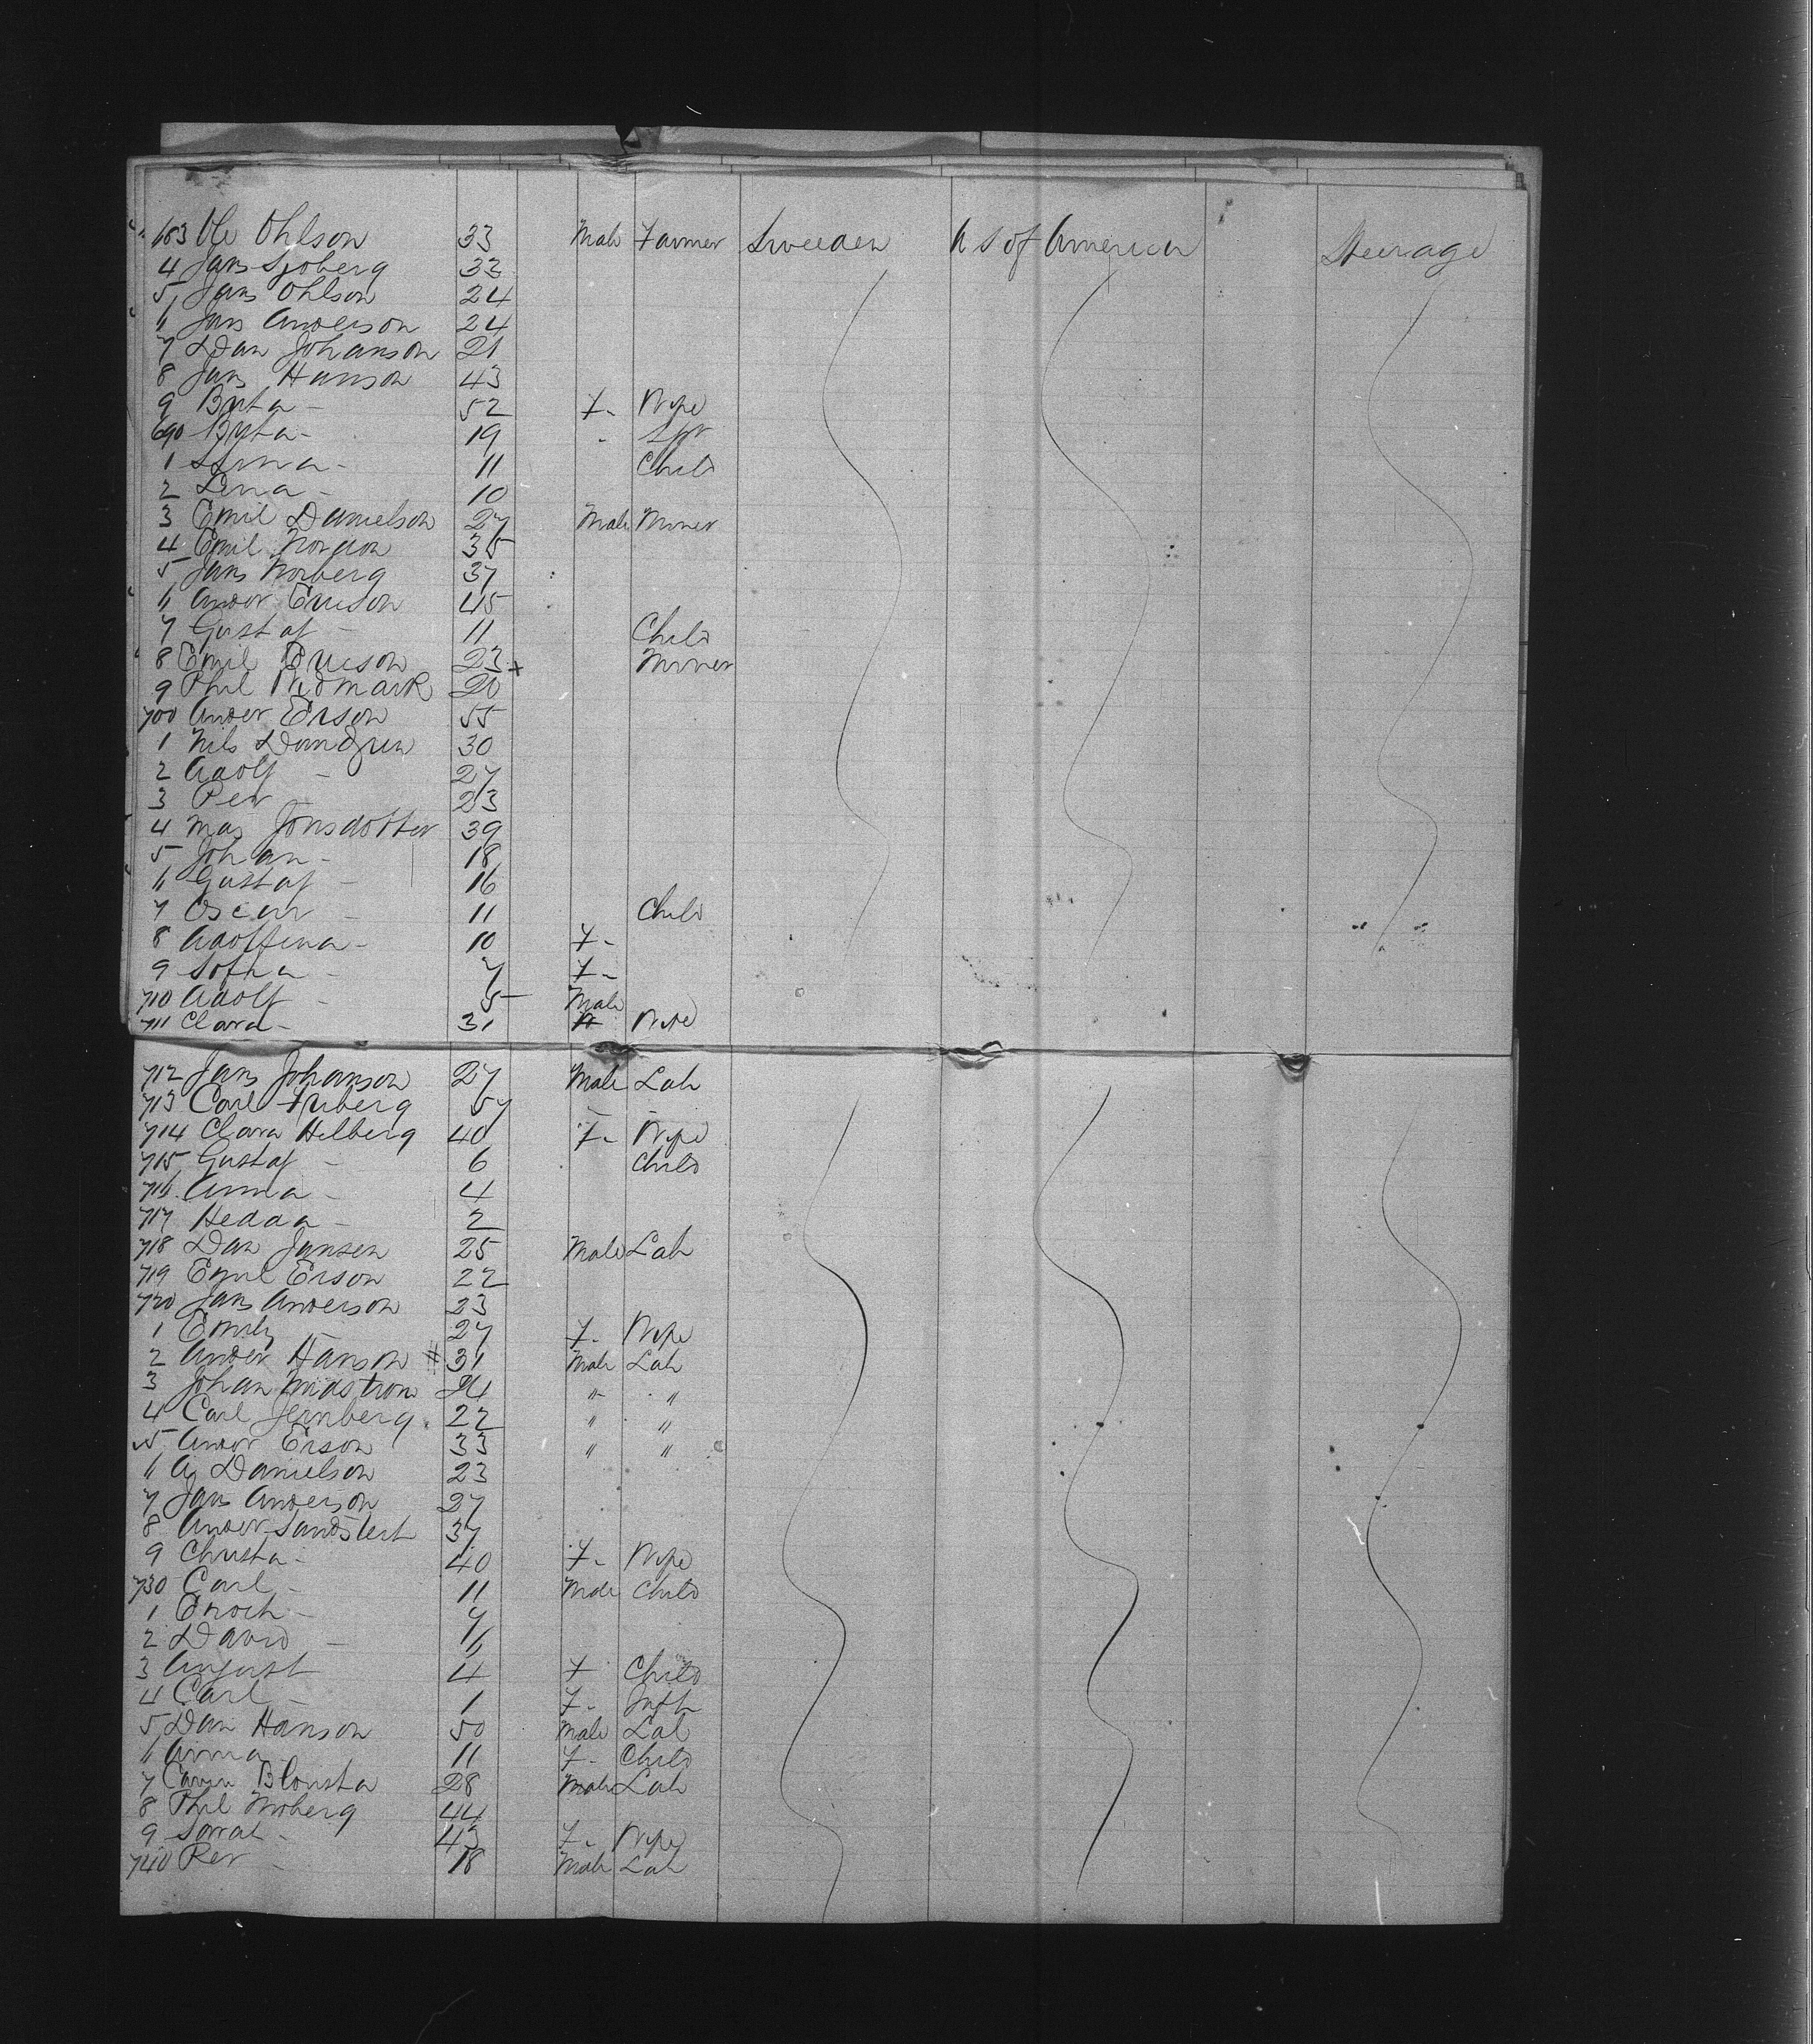 683 Ole Ohlson 33 Male Farmer Sweeden U S of America Steerage
4 Jans Sjoberg 33
5 Jans Ohlson 24
6 Jans Anderson 24
7 Dan Johanson 21
8 Jans Hanson 43
9 Brita - 52 F- Wife
690 Brita - 19 - Spr
1 Stina - 11 Child
2 Lena - 10
3 Emil Danielson 27 Male Miner
4 Emil 35
5 Jans Norberg 37
6 Ander Ericson 45
7 Gustaf - 11 Child
8 Emil Ericson 23 + Miner
9 Phil Widmark 20
700 Ander Erson 55
1 Nils Damgren 30
2 Adolf - 27
3 Per - 23
4 Mas Jonsdotter 39
5 Johan - 18
6 Gustaf - 16
7 Oscar - 11 Child
8 Adolfina - 10 F-
9 Sofia - 7 F-
710 Adolf - 5 Male
711 Clara - 31 Wife
712 Jans Johanson 27 Male Lab
713 Carl Friberg 57 - -
714 Clara Helberg 40 F- Wife
715 Gustaf - 6 Child
716 Anna - 4
717 Hedda - 2
718 Dan Jansen 25 Male Lab
719 Emil Erson 22
720 Jans Anderson 23
1 Emily - 27 F- Wife
2 Ander Hanson # 31 Male Lab
3 Johan Widstrom 24 " "
4 Carl Jernberg 22 " "
5 Ander Erson 33 " "
6 A Danielson 23
7 Jans Anderson 27
8 Ander 37
9 Christa - 40 F- Wife
730 Carl - 11 Male Child
1 Enoch - 7
2 David - 6
3 August 4 F Child
4 Carl - 1 F- Infh
5 Dan Hanson 50 Male Lab
6 Anna - 11 F- Child
7 Blomsta 28 Male Lab
8 Phil Moberg 44
9 Sarrah - 43 F- Wife
740 Per - 18 Male Lab